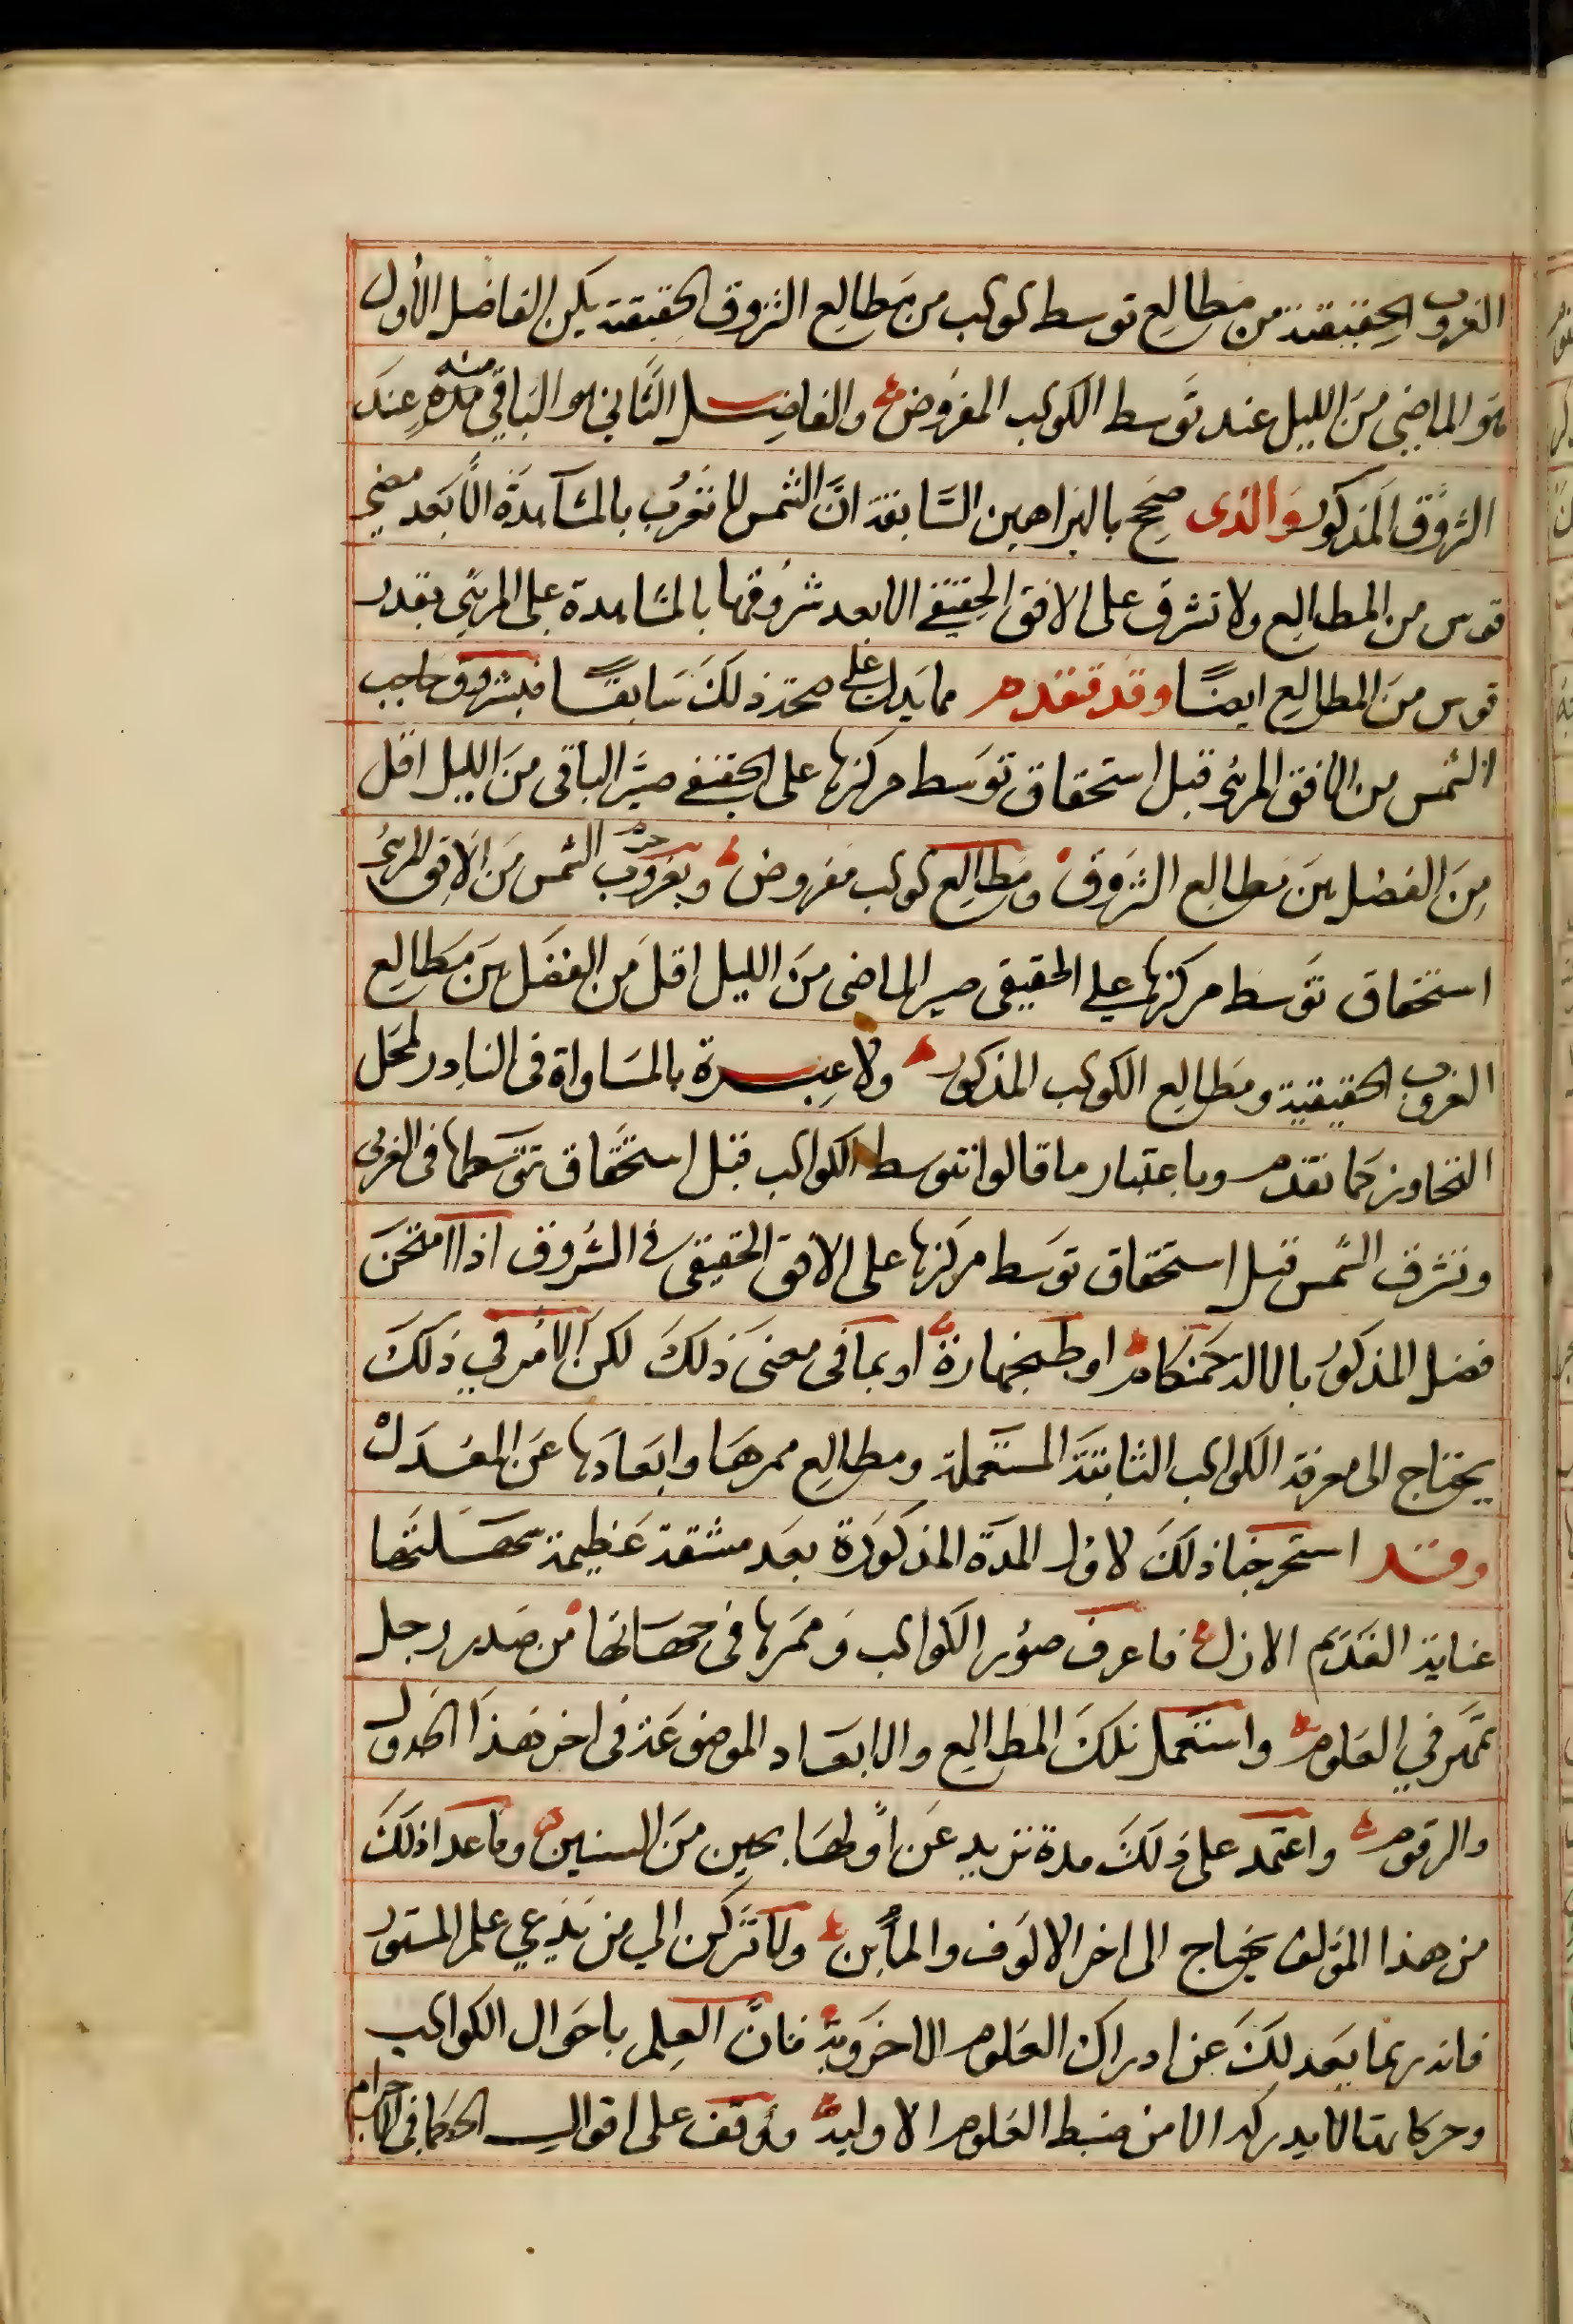 الغروب الحقيقة من مطالع توسط كوكب من مطالع الشروق الحقيقة يكن الفاضل الأول
هو الماضي من الليل عند توسط الكوكب المفروض والفاضل الثاني هو الباقي منه عند
الشروق المذكور والذى صح بالبراهين السابقة ان الشمس لا تغرب بالمشاهدة الا بعد مضى
قوس من المطالع ولا تشرق على الافق الحقيقي الا بعد شروقها بالمشاهدة على المرئي بقدر
قوس من المطالع ايضا وقد تقدم مما يدل على صحة ذلك سابقا فبشروق حاجب
الشمس من الافق المرئى قبل استحقاق توسط مركزها على الحقيقي صير الباقى من الليل اقل
من الفضل بين مطالع الشروق ومطالع كوكب مفروض وبغروب الشمس من الافق المرئى
استحقاق توسط مركزها على الحقيقى صير الماضى من الليل اقل من الفضل بين مطالع
الغروب الحقيقية ومطالع الكوكب المذكور ولا عبرة بالمساواة فى النادر لمحل
التجاوز كما تقدم وباعتبار ما قالوا تتوسط الكواكب قبل استحقاق توسطها فى الغربى
وتشرق الشمس قبل استحقاق توسط مركزها على الافق الحقيقى فى الشروق اذا امتحن
فضل المذكور بالالة او او بما فى معنى ذلك لكن الامر في ذلك
يحتاج الى معرفة الكواكب الثابتة المستعملة ومطالع ممرها وابعادها عن المعدل
وقد استخرجنا ذلك لاول المدة المذكورة بعد مشقة عظيمة سهلتها
عناية القديم الازل فاعرف صور الكواكب وممرها فى جهاتها من صدر رجل
تمهر في العلوم واستعمل تلك المطالع والابعاد الموضوعة فى اخر هذا الجدول
والرقوم واعتمد على ذلك مدة تزيد عن اولها بحين من السنين وما عدا ذلك
من هذا المؤلف يحتاج الى اخر الالوف والمأين ولا تركن الي من يدعي علم المستور
فانه ربما يعدلك عن ادراك العلوم الاخروية فان العلم باحوال الكواكب
وحركاتها لا يدركه الا من ضبط العلوم الاولية ووقف على اقوال الحكما فى الاجرام